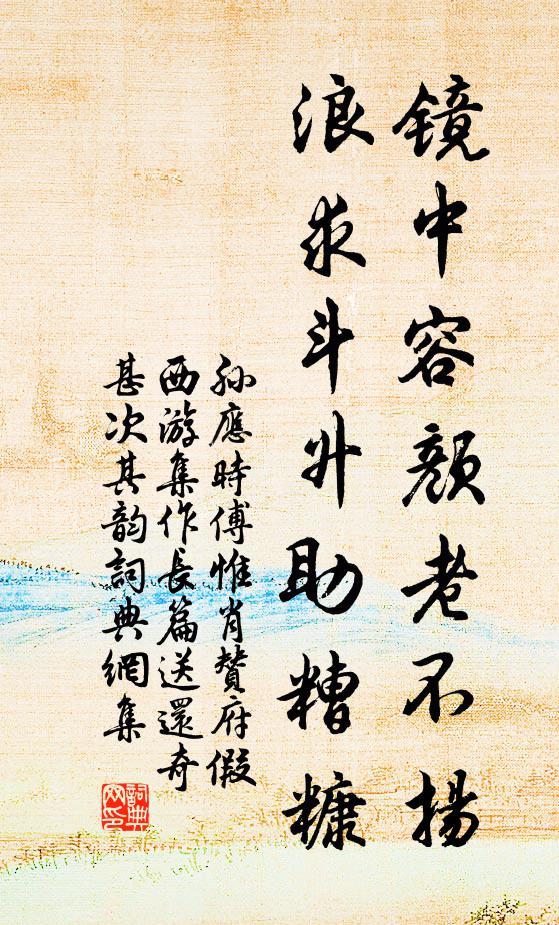 镜中容颜老不揚
浪求斗升助糟糠
孙應時傅惟肖贊府假
西游集作長篇送還奇
甚次其韵詞典網集
詞典网印